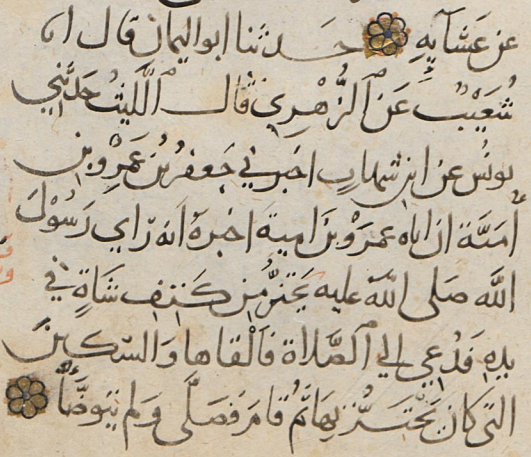 عن عشآيه حدثنا ابو اليمان قال انا
شُعَيْبٌ عَنِ الزُّهْرِي قَال الَّليْثُ حَدثني
يونُس عن ابن شهاب اخبرني جَعفرُ بْنُ عَمْرِو بْنِ
أُمَيَّة ان اباه عمرَو بْنَ امية اخبرهُ انه رَاي رَسُوْلَ
الله صَلى الله عليه يَحْتزُّ مِن كَتِفِ شَاةٍ في
يدِهِ فَدُعِي الي الصَّلاة فَالْقاها وَالسّكينَ
التي كانَ يَحْتَزُّ بِهَا ثُمَّ قامَ فَصَلَّى وَلم يَتوضَّأْ